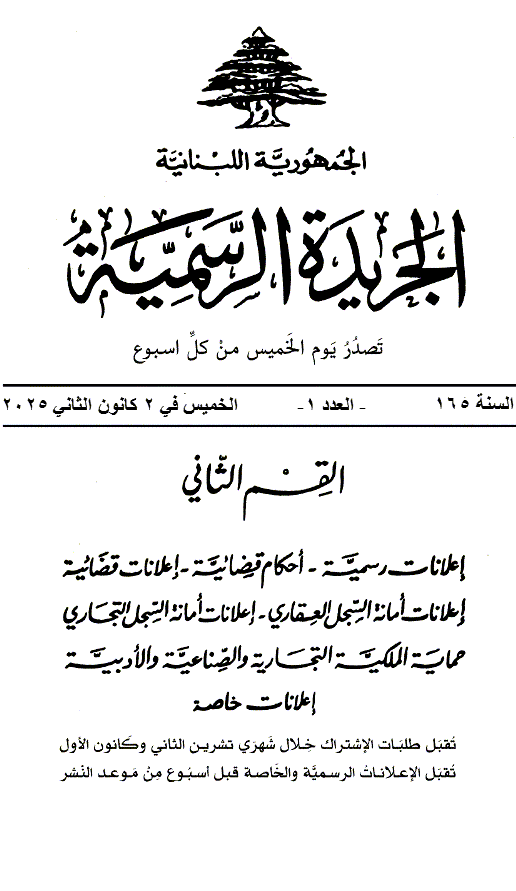 الجُمهُوريَّة اللبْنانيَّة
الجَريدَة الرسَّمِيَّة
تَصدُرُ يَوم الخَميس منْ كلِّ اسبوع
السنة ١٦٥ - العدد ١- الخميس في ٢ كانون الثاني ٢٠٢٥
القِسْم الثّاني
إعلانات رسميَّة - أحكام قضائيَّة - إعلانات قضائية
إعلانات أمانة السِّجل العقاري - إعلانات أمانة السِّجل التجاري
حماية الملكيَّة التجارية والصِّناعيَّة والأدبيَّة
إعلانات خاصة
تُقبَل طلبَات الإشتراك خِلال شَهرَي تشرين الثاني وكَانون الأول
تُقبَل الإعلاناتُ الرسميَّة والخَاصة قبل أسبُوع مِنْ مَوعد النَشر